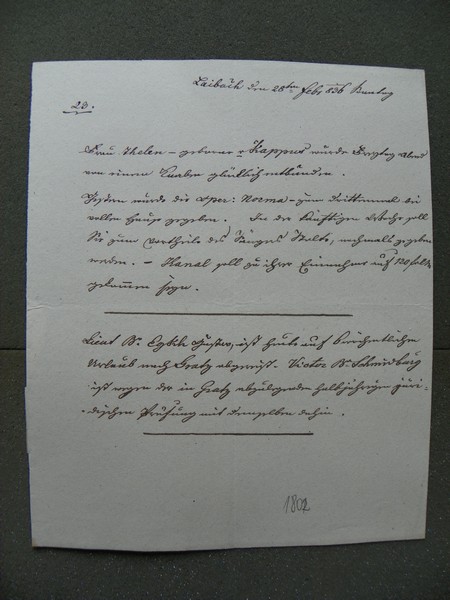 Laibach den 28ten Febr 836 Sontag
23.
Frau Thelen – geborene v Kappus wurde Freytag Abend
von einem Knaben glücklich entbunden.
Gestern wurde die Oper: Norma – zum drittenmal bei
vollem Hause gegeben. In der künftigen Woche soll
Sie zum Vortheile des Sängers nochmals gegeben
werden. – soll zu ihrer Einnahme auf 130
gekommen seyn.
Lieut Br. Gustav, ist heute auf
Urlaub nach Gratz abgereist. Victor Br. Schmidburg
ist wegen der in Gratz abzulegenden halbjährigen juri-
dischen Prüfung mit demselben dahin.
1802